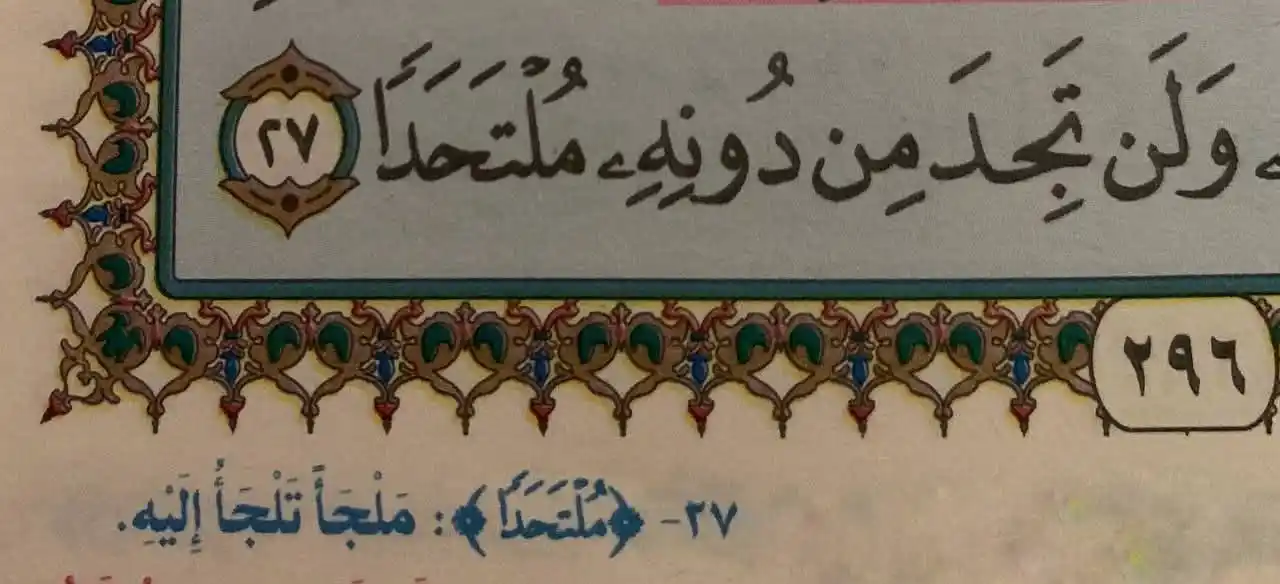 وَلَن تَجِدَ مِن دُونِهِۦ مُلْتَحَدًا ٢٧
٢٩٦
٢٧- ﴿مُلْتَحَدًا﴾: مَلْجَأً تَلْجَأُ إِلَيْهِ.